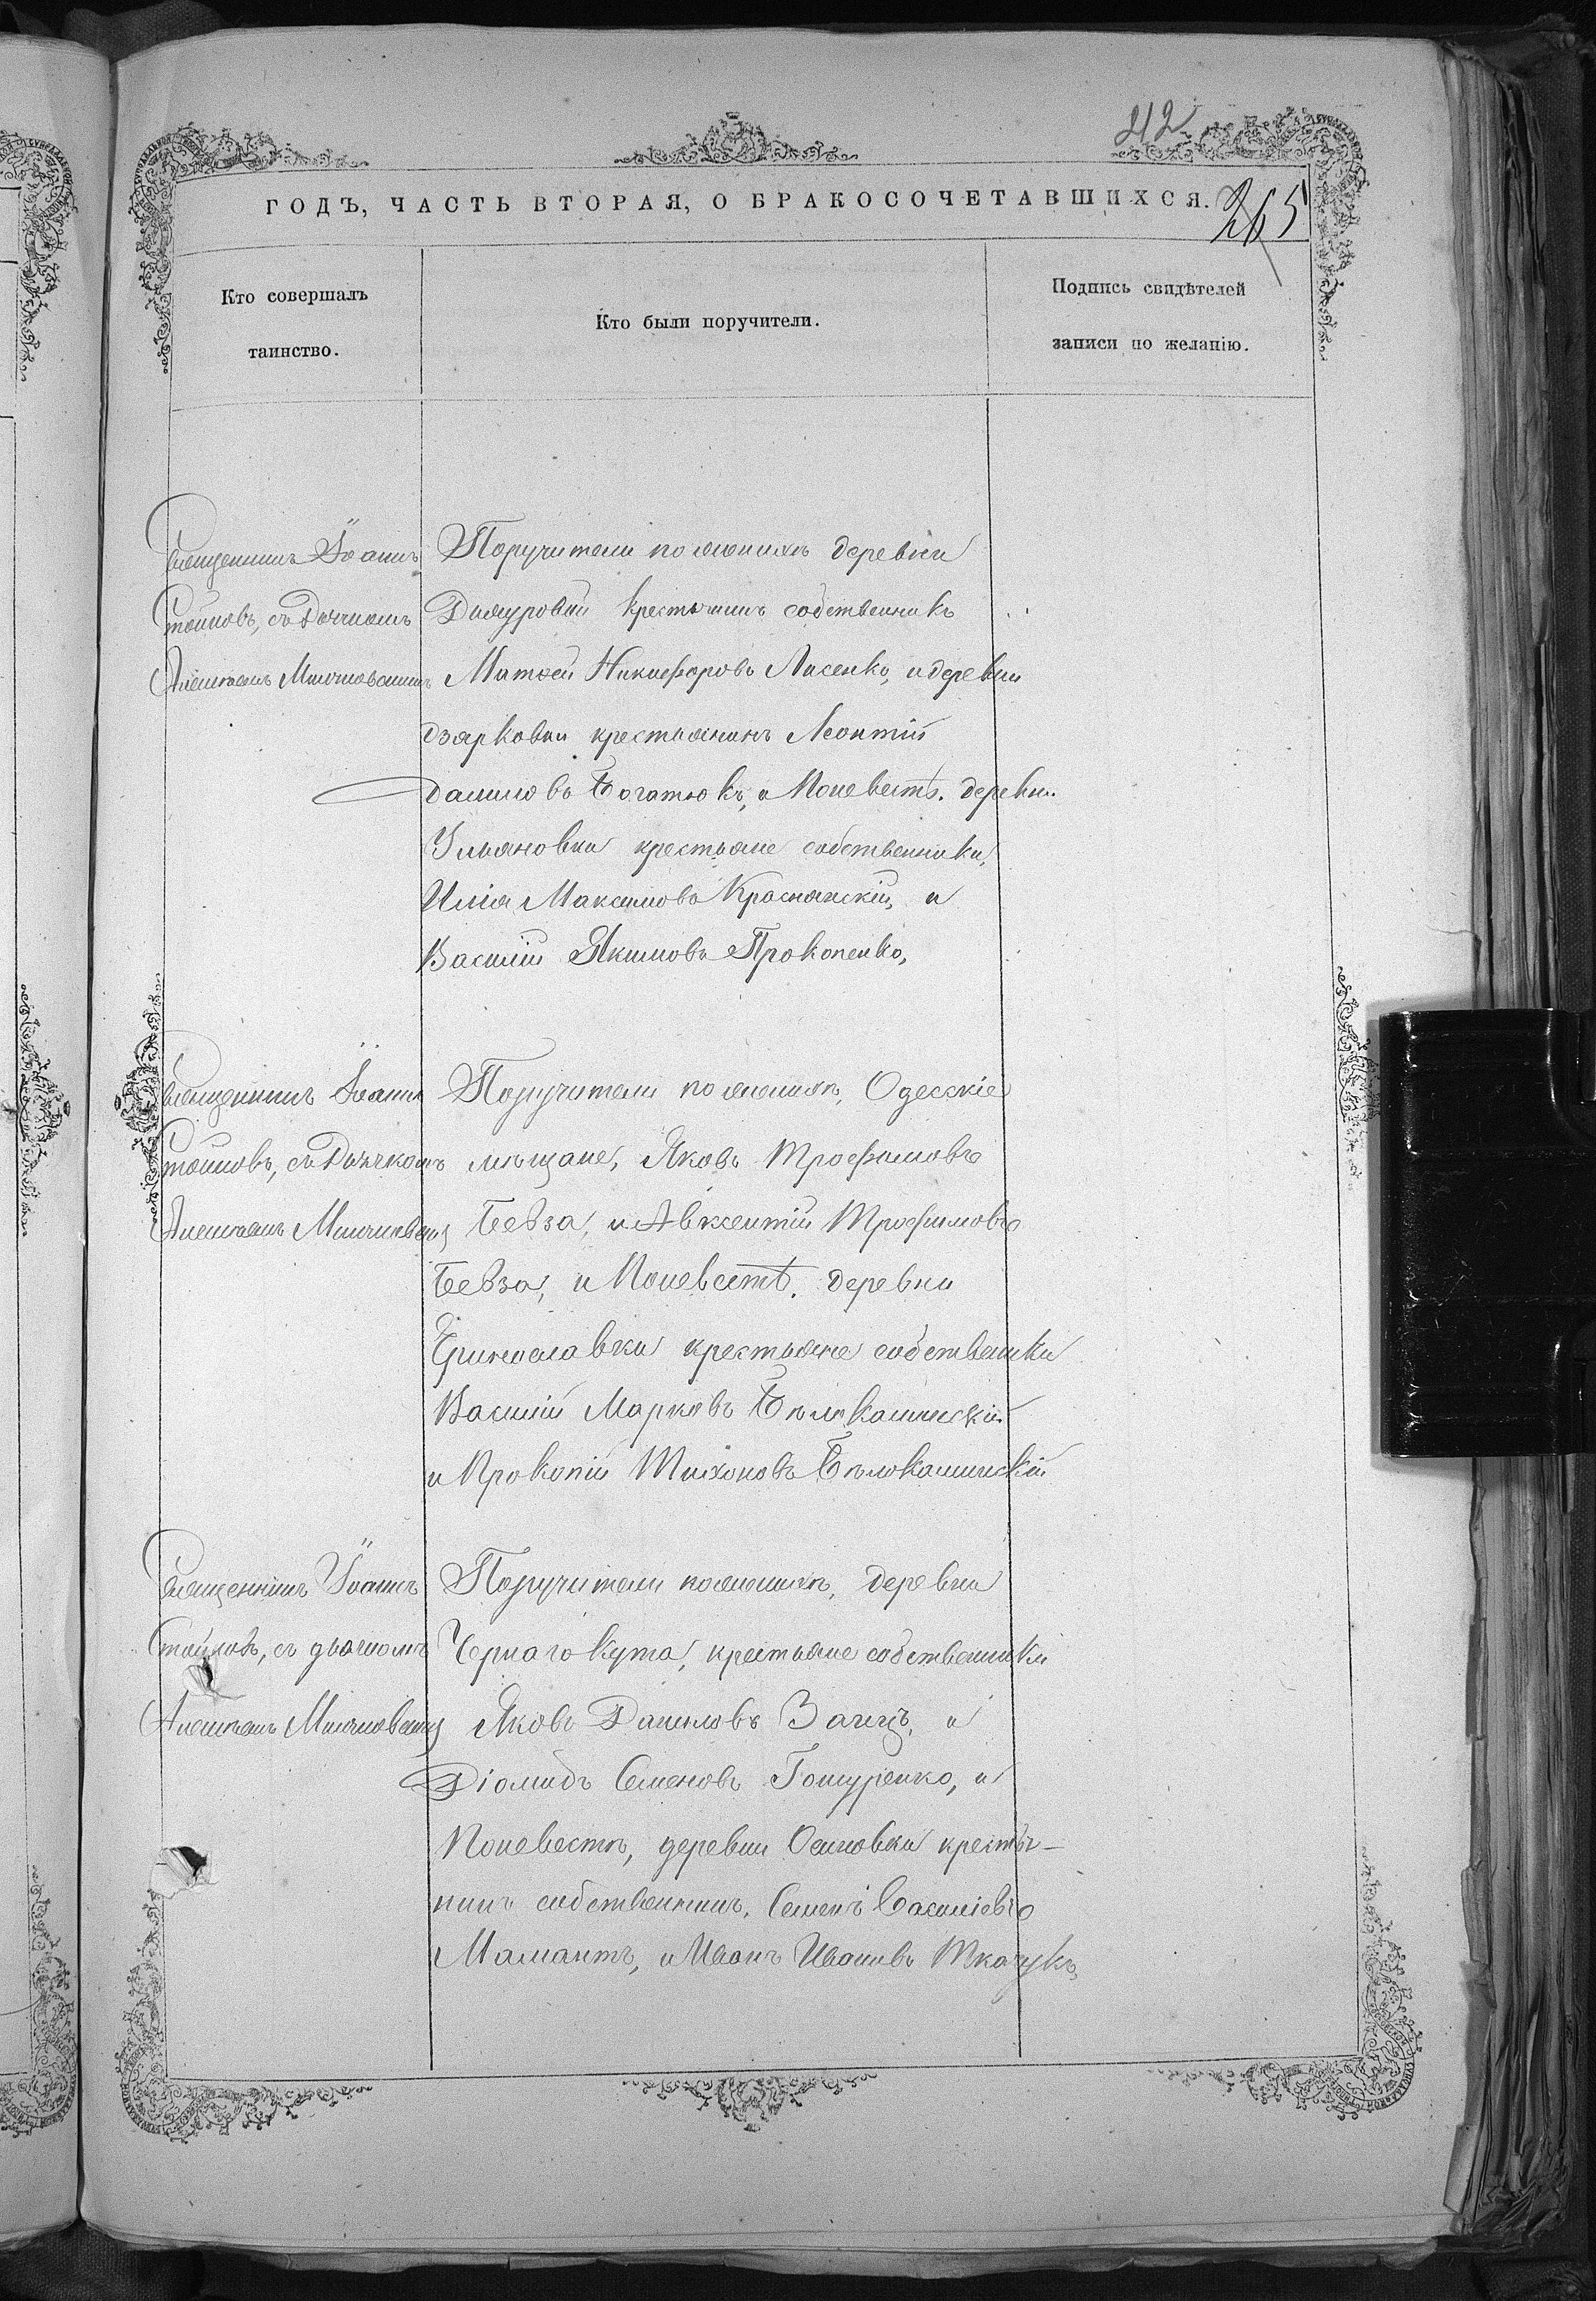 212
ГОДЪ, ЧАСТЬ ВТОРАЯ, О БРАКОСОЧЕТАВШИХСЯ.
265
Кто совершалъ
таинство.
Кто были поручители.
Подпись свидѣтелей
записи по желанію.
Священникъ Іоаннъ
Стоиковъ, съ Дьячкомъ
Поручители по женихѣ деревни
крестьянинъ собственникъ
Матѳей Никифоровъ Лисенко, и деревни
крестьянинъ Леонтій
Даниловъ Богатюкъ, и По невестѣ. деревни
Ульяновки крестьяне собственники,
Илія Максимовъ Краснянскій, и
Василій Якимовъ Прокопенко,
Священникъ Іоаннъ
Стоиковъ, съ Дьячкомъ
Поручители по женихѣ, Одесскіе
мѣщане, Яковъ Трофимовъ
Бевза, и Авксентій Трофимовъ
Бевза, и По невестѣ. деревни
крестьяне собственики
Василій Марковъ
и Прокопій Тихоновъ
Священникъ Іоаннъ
Стоиковъ, съ дьячкомъ
Поручители по женихѣ, деревни
Чернаго Кута, крестьяне собственники
Яковъ Даниловъ Заецъ, и
Діомидъ Семеновъ и
По невестѣ, деревни Осиповки крестья-
нинъ собственникъ, Семенъ Василіевъ
Мамантъ, и Иванъ Ивановъ Ткачукъ,